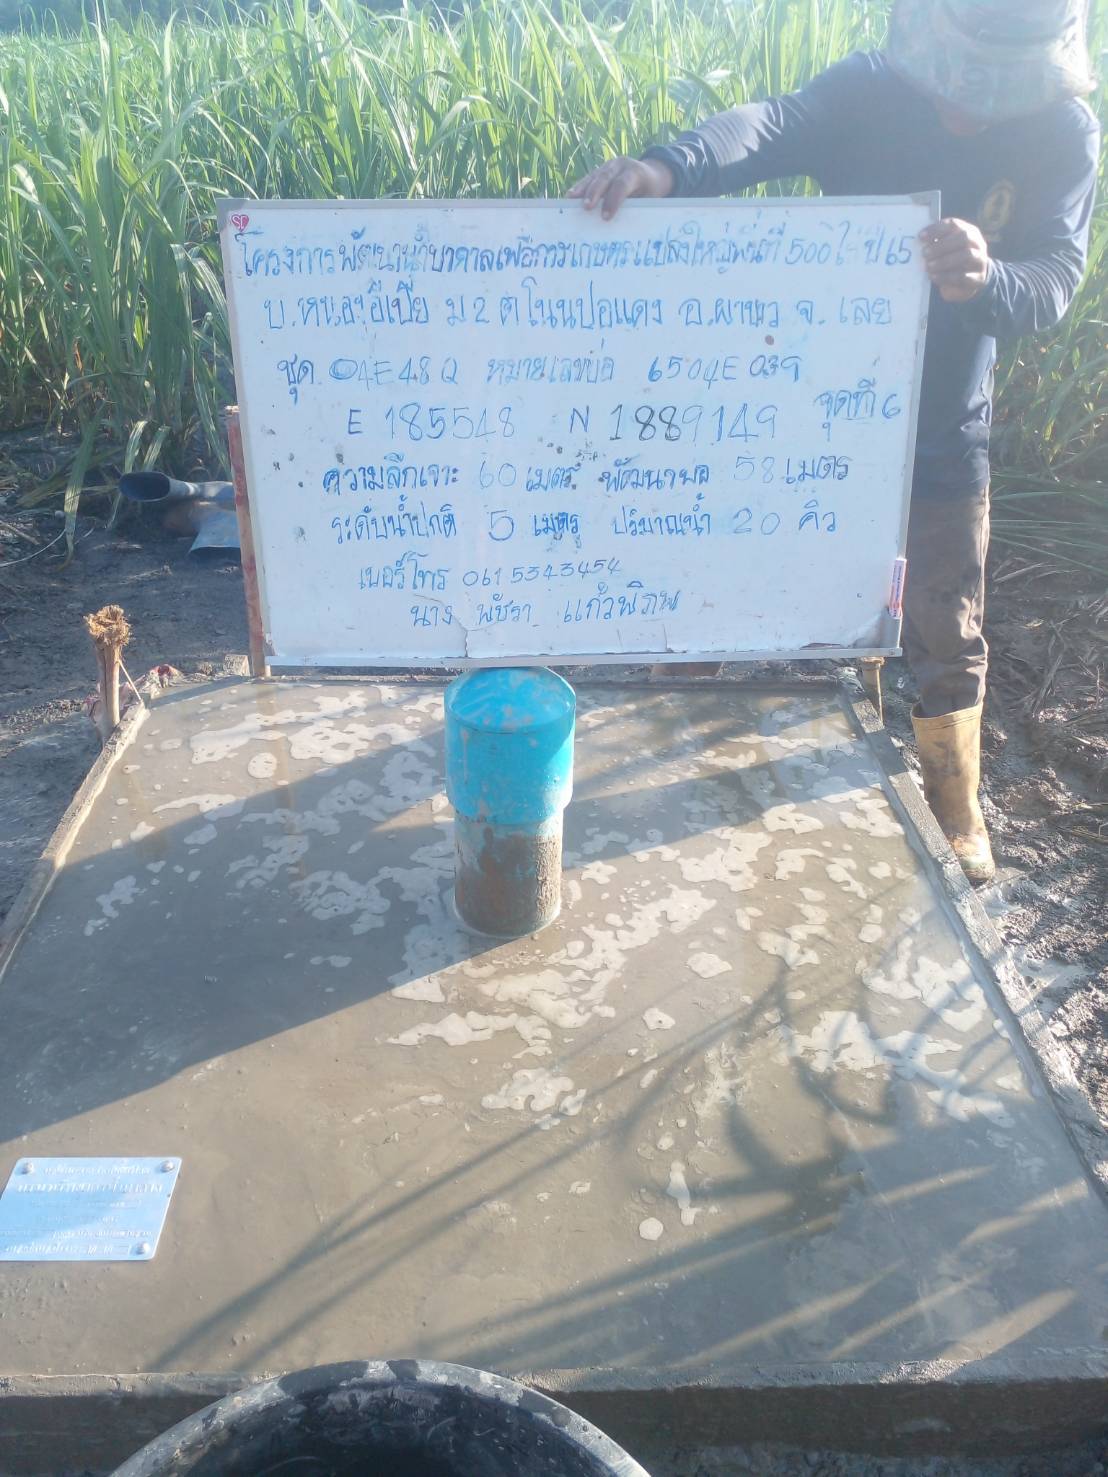 โครงการพัฒนาน้ำบาดาลเพื่อการเกษตรแปลงใหญ่พื้นที่ 500 ไร่ ปี 65
บ.หนองอีเปี้ย ม 2 ต โนนปอแดง อ.ผาขาว จ. เลย
ชุด 04E48Q หมายเลขบ่อ 6504E039
จุดที่ 6
E 185548 N 1889149
ความลึกเจาะ 60 เมตร พัฒนาบ่อ 58 เมตร
ระดับน้ำปกติ 5 เมตร ปริมาณน้ำ 20 คิว
เบอร์โทร 061 5343454
นาง พัชรา แก้วพิภพ